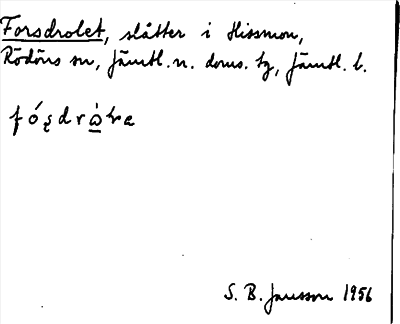 Forsdrolet, slåtter i Hissmon,
Rödöns sn, Jämtl. n. doms. tg, Jämtl. l.
S. B. Jansson 1956